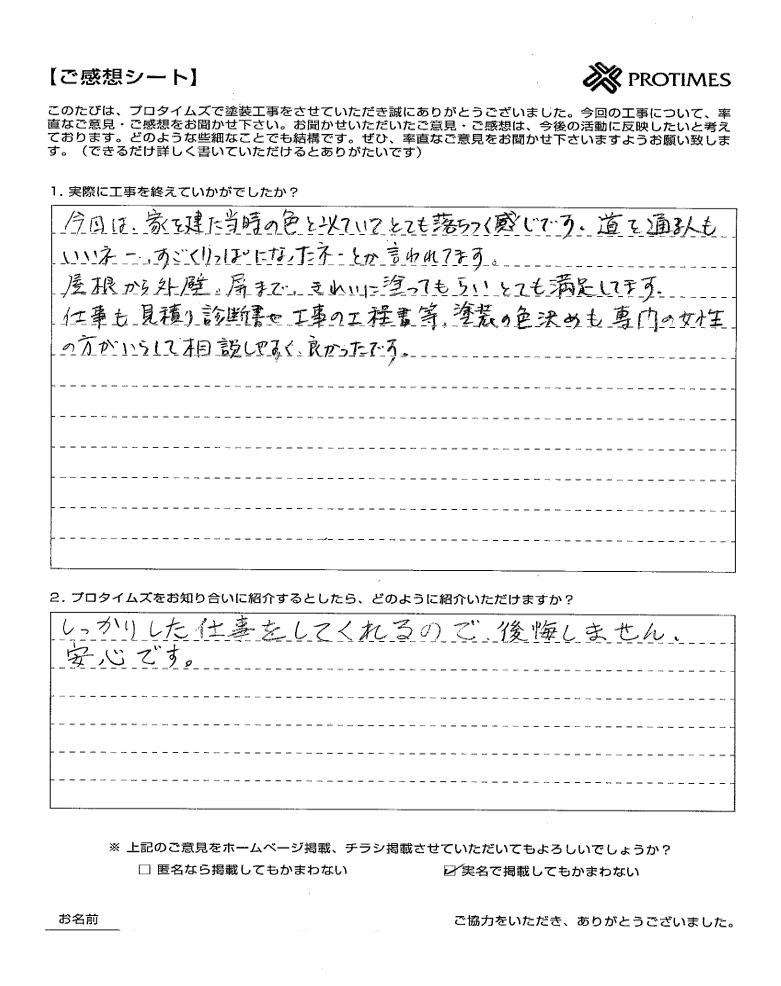 【ご感想シート】
PROTIMES
このたびは、プロタイムズで塗装工事をさせていただき誠にありがとうございました。今回の工事について、率
直なご意見・ご感想をお聞かせ下さい。お聞かせいただいたご意見・ご感想は、今後の活動に反映したいと考え
ております。どのような些細なことでも結構です。ぜひ、率直なご意見をお聞かせ下さいますようお願い致しま
す。（できるだけ詳しく書いていただけるとありがたいです）
1. 実際に工事を終えていかがでしたか？
今回は、家を建た当時の色と以ていてとても落ちつく感じです。道を通る人も
いいネー、すごくりっぱになったネーとか言われてます。
屋根から外壁、屏まで、きれいに塗ってもらいとても満足してます。
仕事も見積り診断書や工事の工程書等、塗装の色決めも専門の女性
の方がいらして相談しやすく、良かったです。
2. プロタイムズをお知り合いに紹介するとしたら、どのように紹介いただけますか？
しっかりした仕事をしてくれるので、後悔しません、
安心です。
※ 上記のご意見をホームページ掲載、チラシ掲載させていただいてもよろしいでしょうか？
□ 匿名なら掲載してもかまわない ☑実名で掲載してもかまわない
お名前 ご協力をいただき、ありがとうございました。